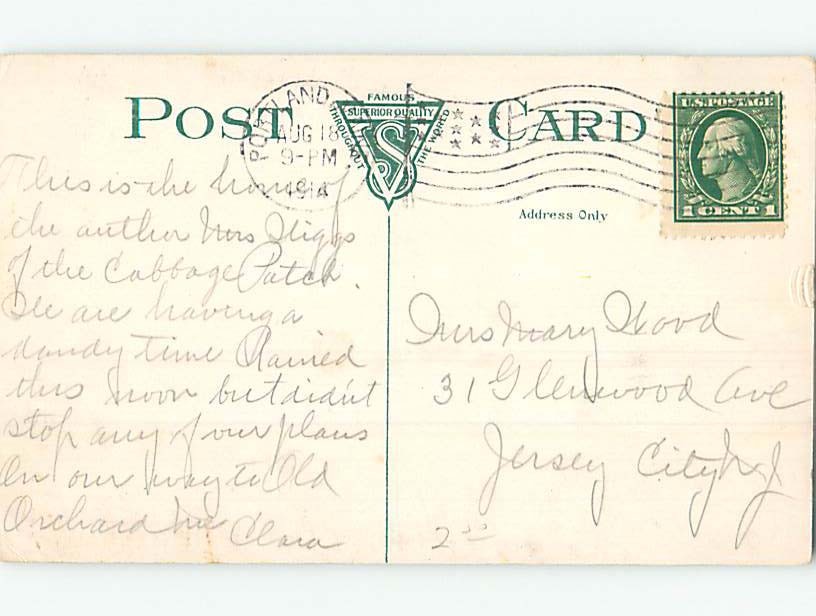 POST CARD
FAMOUS
SUPERIOR QUALITY
THROUGHOUT THE WORLD
S
PORTLAND
AUG 18
9-PM
1914
U.S. POSTAGE
1 CENT 1
Address Only
This is the home of
the author Mrs Wiggs
of the Cabbage Patch.
We are having a
dandy time Rained
this noon but didn't
stop any of our plans
On our way to Old
Orchard Me Clara
Mrs Mary Wood
31 Glenwood Ave
Jersey City N J
2 00